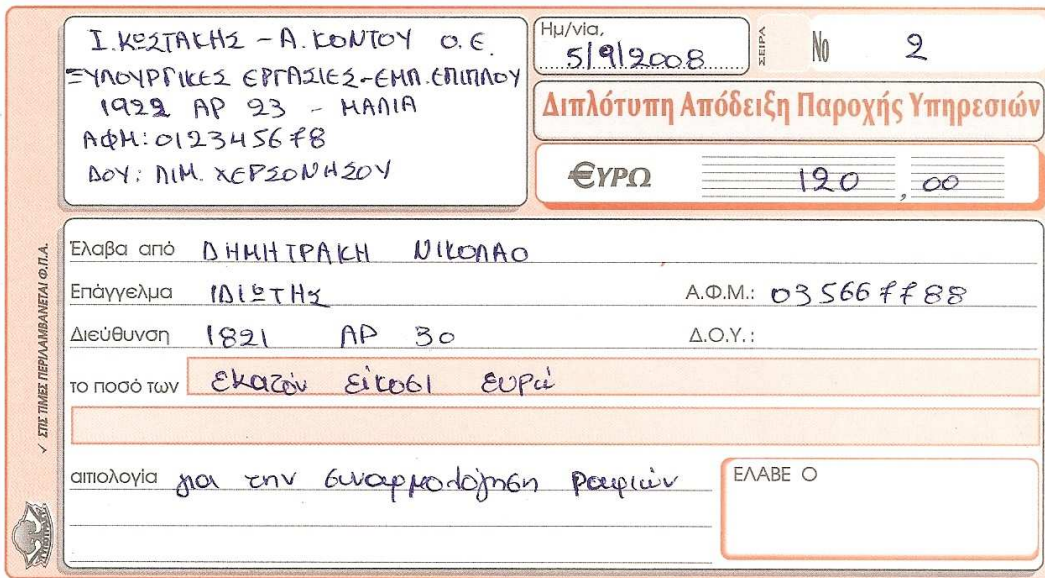 Ι. ΚΩΣΤΑΚΗΣ - Α. ΚΟΝΤΟΥ Ο.Ε.
ΞΥΛΟΥΡΓΙΚΕΣ ΕΡΓΑΣΙΕΣ-ΕΜΠ. ΕΠΙΠΛΟΥ
1922 ΑΡ 23 - ΜΑΛΙΑ
ΑΦΜ: 012345678
ΔΟΥ: ΛΙΜ. ΧΕΡΣΟΝΗΣΟΥ
Ημ/νία, 5/9/2008
ΣΕΙΡΑ
No 2
Διπλότυπη Απόδειξη Παροχής Υπηρεσιών
€ΥΡΩ 120,00
Έλαβα από ΔΗΜΗΤΡΑΚΗ ΝΙΚΟΛΑΟ
Επάγγελμα ΙΔΙΩΤΗΣ Α.Φ.Μ.: 035667788
Διεύθυνση 1821 ΑΡ 30 Δ.Ο.Υ.:
το ποσό των Εκατόν είκοσι ευρώ
αιτιολογία για την συναρμολόγηση ραφιών
ΕΛΑΒΕ Ο
✓ ΣΤΙΣ ΤΙΜΕΣ ΠΕΡΙΛΑΜΒΑΝΕΤΑΙ Φ.Π.Α.